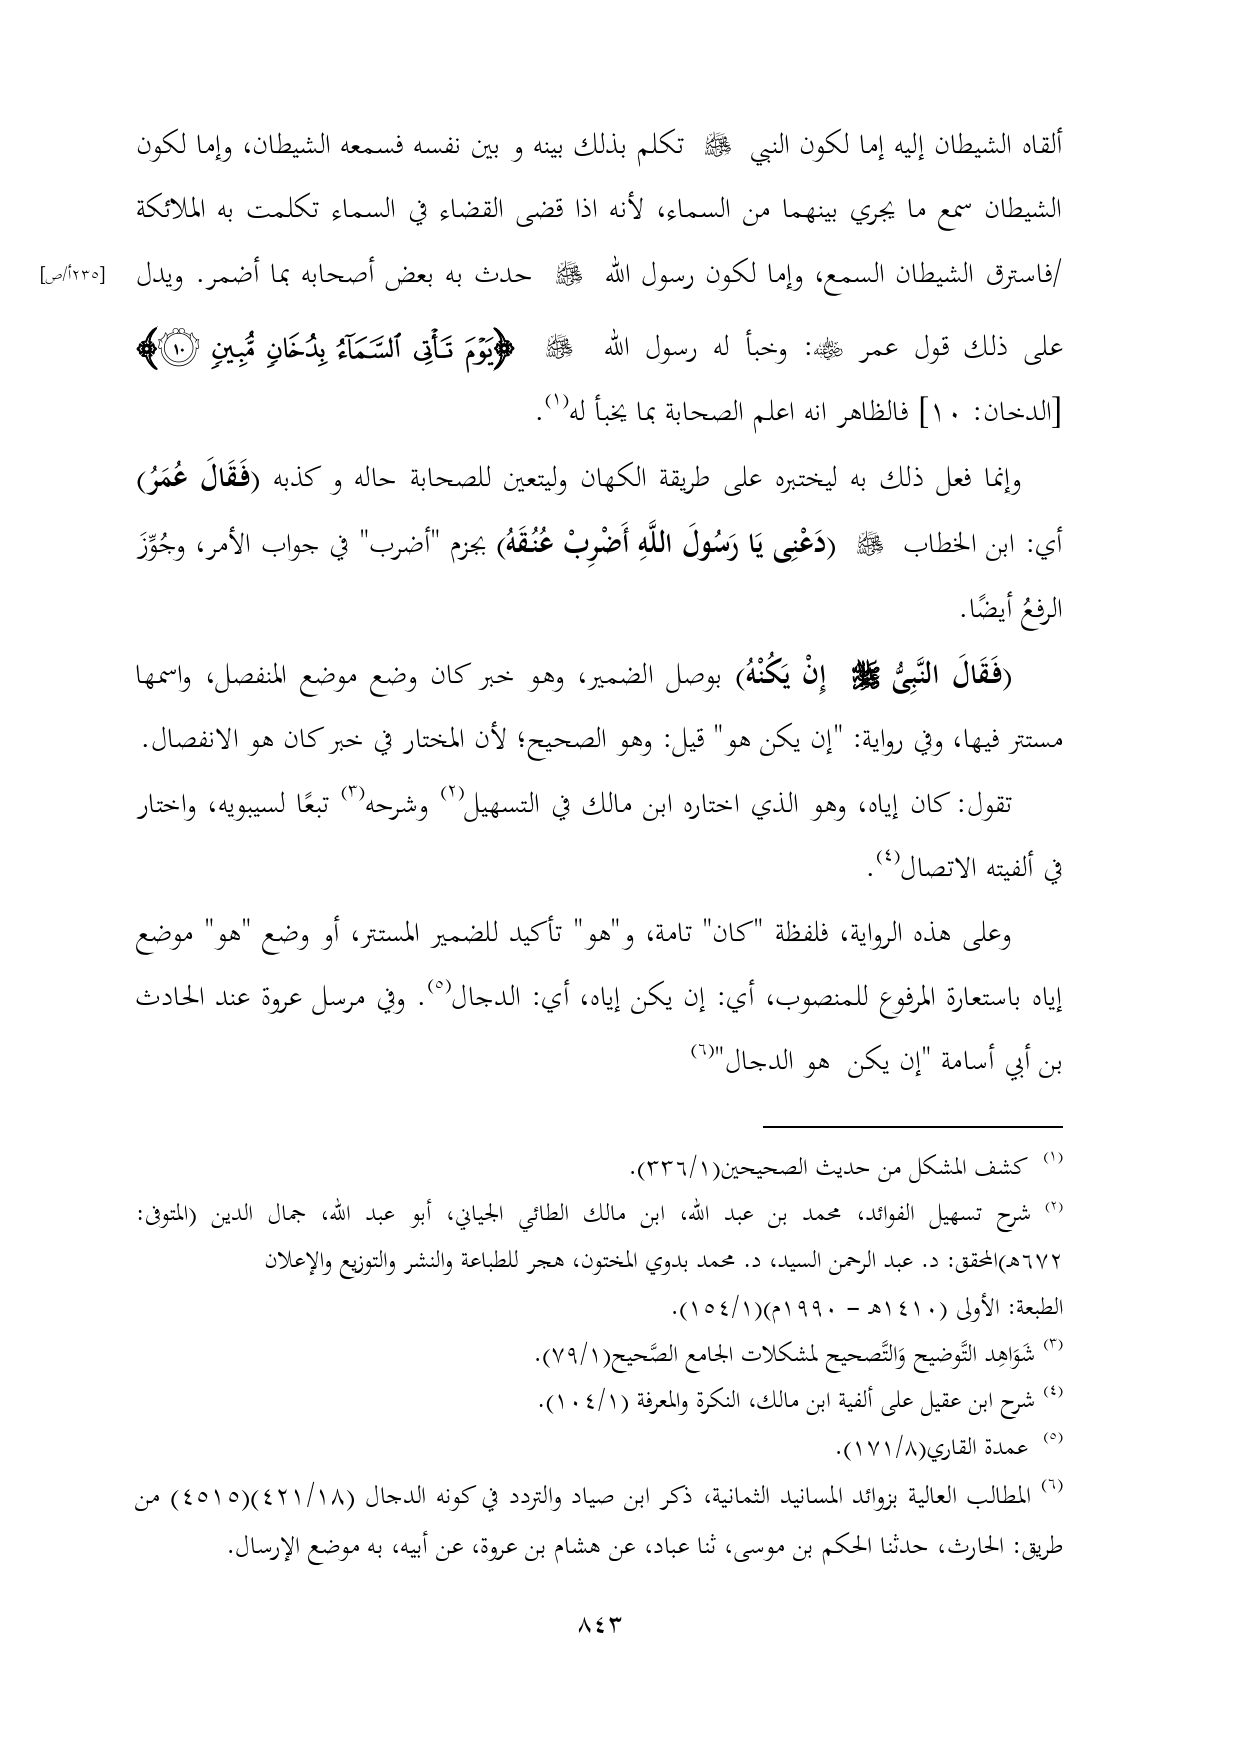 ألقاه الشيطان إليه إما لكون النبي ﷺ تكلم بذلك بينه و بين نفسه فسمعه الشيطان، وإما لكون
الشيطان سمع ما يجري بينهما من السماء، لأنه اذا قضى القضاء في السماء تكلمت به الملائكة
/فاسترق الشيطان السمع، وإما لكون رسول الله ﷺ حدث به بعض أصحابه بما أضمر. ويدل
[٢٣٥أ/ص]
على ذلك قول عمر ﷺ: وخبأ له رسول الله ﷺ ﴿يَوْمَ تَأْتِى ٱلسَّمَآءُ بِدُخَانٍ مُّبِينٍ ١٠﴾
[الدخان: ١٠] فالظاهر انه اعلم الصحابة بما يخبأ له(١).
وإنما فعل ذلك به ليختبره على طريقة الكهان وليتعين للصحابة حاله و كذبه (فَقَالَ عُمَرُ)
أي: ابن الخطاب ﷺ (دَعْنِى يَا رَسُولَ اللَّهِ أَضْرِبْ عُنُقَهُ) بجزم "أضرب" في جواب الأمر، وجُوِّزَ
الرفعُ أيضًا.
(فَقَالَ النَّبِىُّ ﷺ إِنْ يَكُنْهُ) بوصل الضمير، وهو خبر كان وضع موضع المنفصل، واسمها
مستتر فيها، وفي رواية: "إن يكن هو" قيل: وهو الصحيح؛ لأن المختار في خبر كان هو الانفصال.
تقول: كان إياه، وهو الذي اختاره ابن مالك في التسهيل(٢) وشرحه(٣) تبعًا لسيبويه، واختار
في ألفيته الاتصال(٤).
وعلى هذه الرواية، فلفظة "كان" تامة، و"هو" تأكيد للضمير المستتر، أو وضع "هو" موضع
إياه باستعارة المرفوع للمنصوب، أي: إن يكن إياه، أي: الدجال(٥). وفي مرسل عروة عند الحادث
بن أبي أسامة "إن يكن هو الدجال"(٦)
(١) كشف المشكل من حديث الصحيحين(٣٣٦/١).
(٢) شرح تسهيل الفوائد، محمد بن عبد الله، ابن مالك الطائي الجياني، أبو عبد الله، جمال الدين (المتوفى:
٦٧٢هـ)المحقق: د. عبد الرحمن السيد، د. محمد بدوي المختون، هجر للطباعة والنشر والتوزيع والإعلان
الطبعة: الأولى (١٤١٠هـ – ١٩٩٠م)(١٥٤/١).
(٣) شَوَاهِد التَّوضيح وَالتَّصحيح لمشكلات الجامع الصَّحيح(٧٩/١).
(٤) شرح ابن عقيل على ألفية ابن مالك، النكرة والمعرفة (١٠٤/١).
(٥) عمدة القاري(١٧١/٨).
(٦) المطالب العالية بزوائد المسانيد الثمانية، ذكر ابن صياد والتردد في كونه الدجال (٤٢١/١٨)(٤٥١٥) من
طريق: الحارث، حدثنا الحكم بن موسى، ثنا عباد، عن هشام بن عروة، عن أبيه، به موضع الإرسال.
٨٤٣